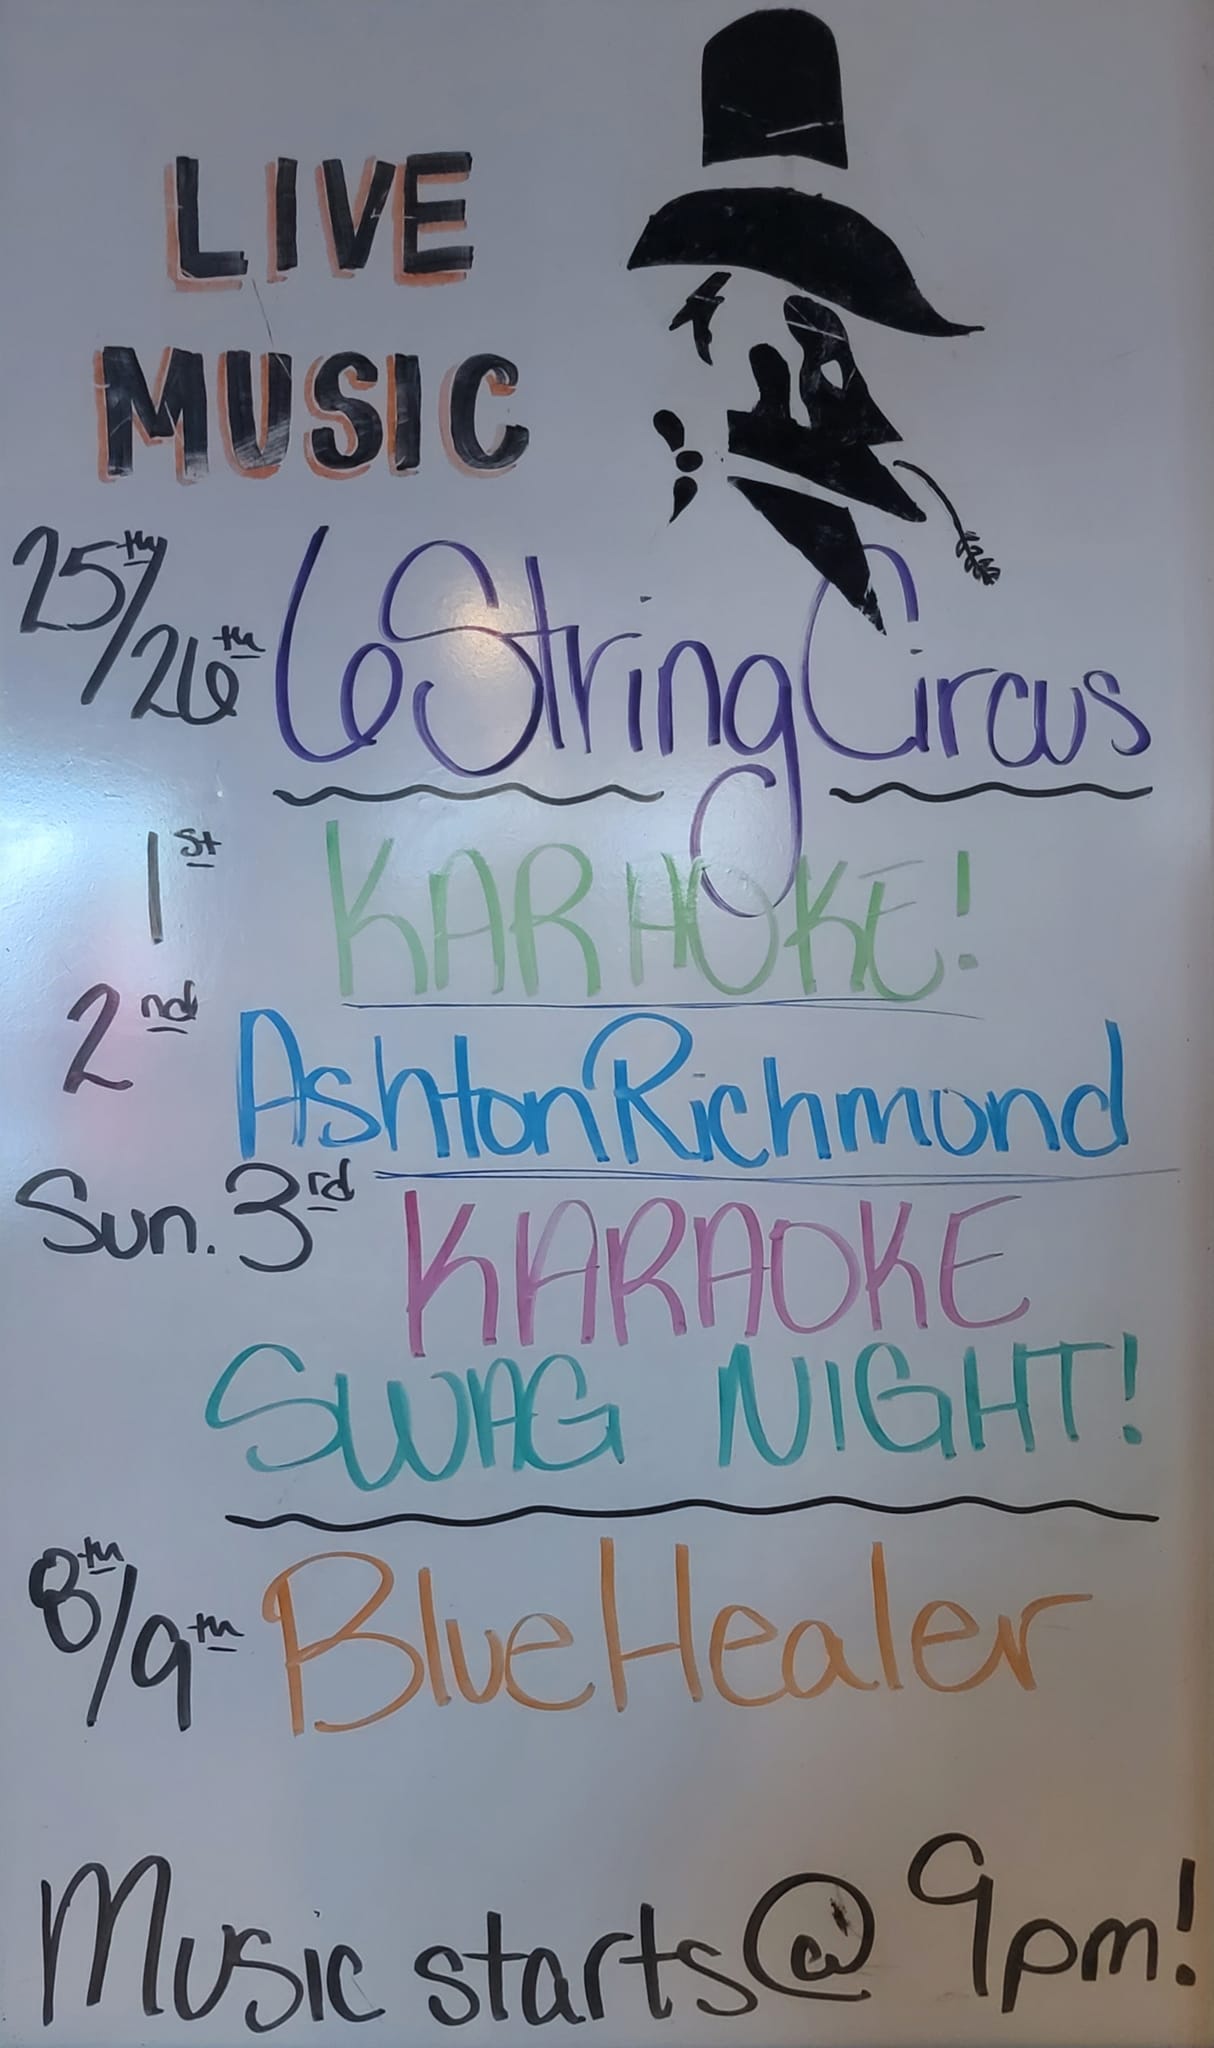 LIVE
MUSIC
25th/26th 6 String Circus
1st KARAOKE!
2nd Ashton Richmond
Sun. 3rd KARAOKE
SWAG NIGHT!
8th/9th Blue Healer
Music starts @ 9pm!